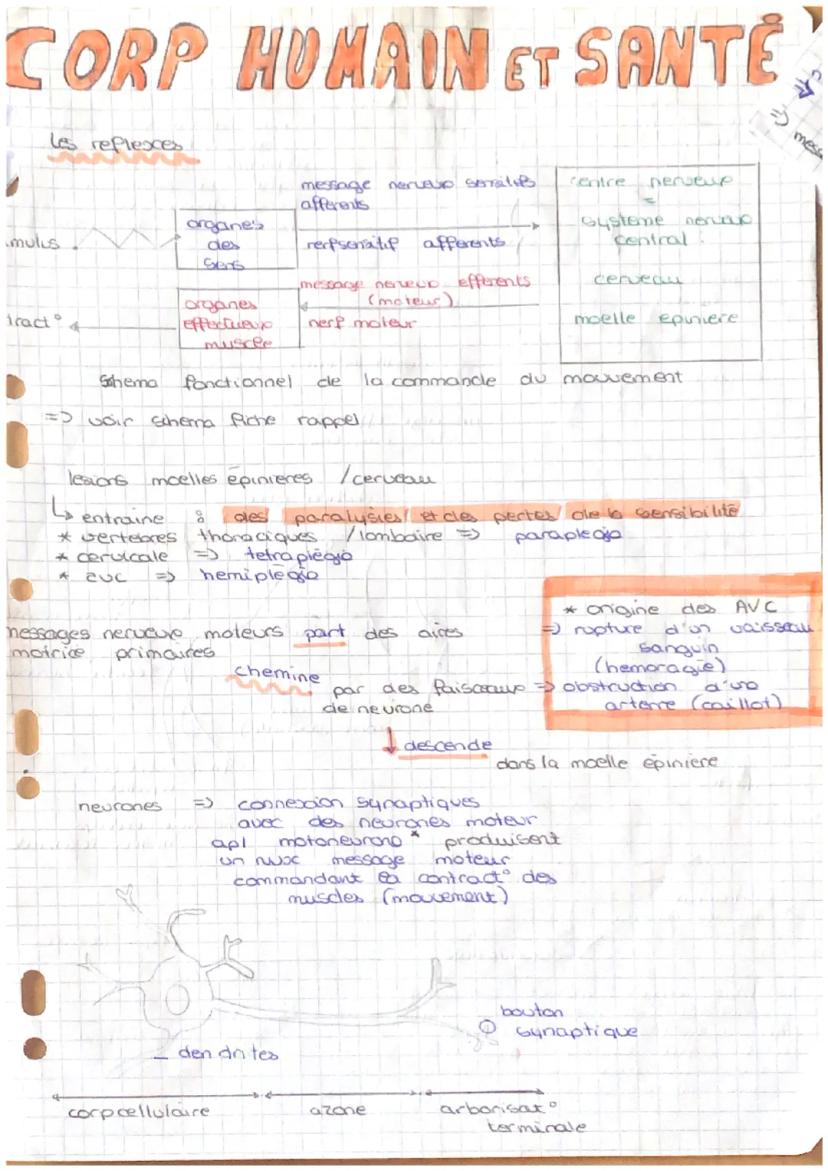 CORP HUMAIN ET SANTÉ
les reflexes
message nerveux sensitifs
afferents
centre nerveux
=
systeme nerveux
central :
cerveau
moelle epiniere
mulus
organes
des
sens
nerf sensitif afferents
message nerveux efferents
(moteur)
nerf moteur
organes
effectueux
muscle
tract°
schema fonctionnel de la commande du mouvement
=> voir schema fiche rappel
lesions moelles épinieres / cerveau
↳ entraine : des paralysies et des pertes de la sensibilité
* vertebres thoraciques / lombaire => paraplegio
* cervicale => tetraplégio
* avc => hemiplégio
* origine des AVC
=> rupture d'un vaisseau
sanguin
(hemoragie)
=> obstruction d'une
arterre (caillot)
messages nerveux moteurs part des aires
motrice primaires
chemine
par des faisceaux
de neurone
↓ descende
dans la moelle épiniere
neurones => connexion synaptiques
avec des neurones moteur
apl motoneurono * produisent
un nvx message moteur
commandant la contract° des
muscles (mouvement)
bouton
synaptique
dendrites
corp cellulaire
axone
arborisat°
terminale
=>
mess